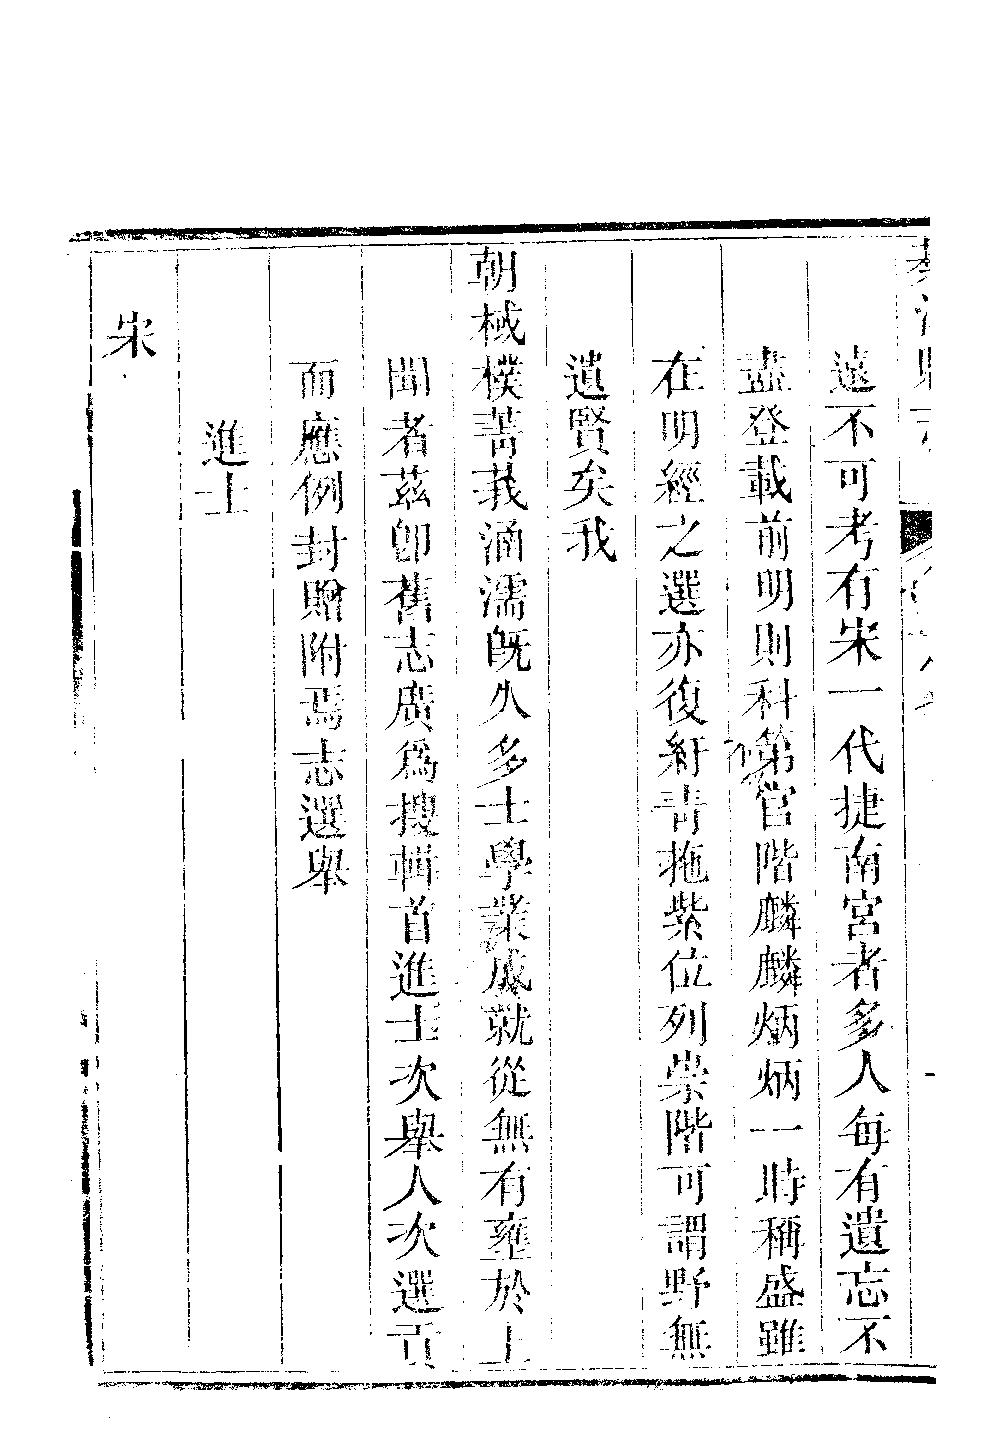 遠不可考有宋一代捷南宮者多人每有遺忘不
盡登載前明則科第官階麟麟炳炳一時稱盛雖
在明經之選亦復紆青拖紫位列崇階可謂野無
遺賢矣我
朝棫樸菁莪涵濡既久多士學業成就從無有壅於上
聞者茲卽舊志廣爲搜輯首進士次舉人次選貢
而應例封贈附焉志選舉
進士
宋